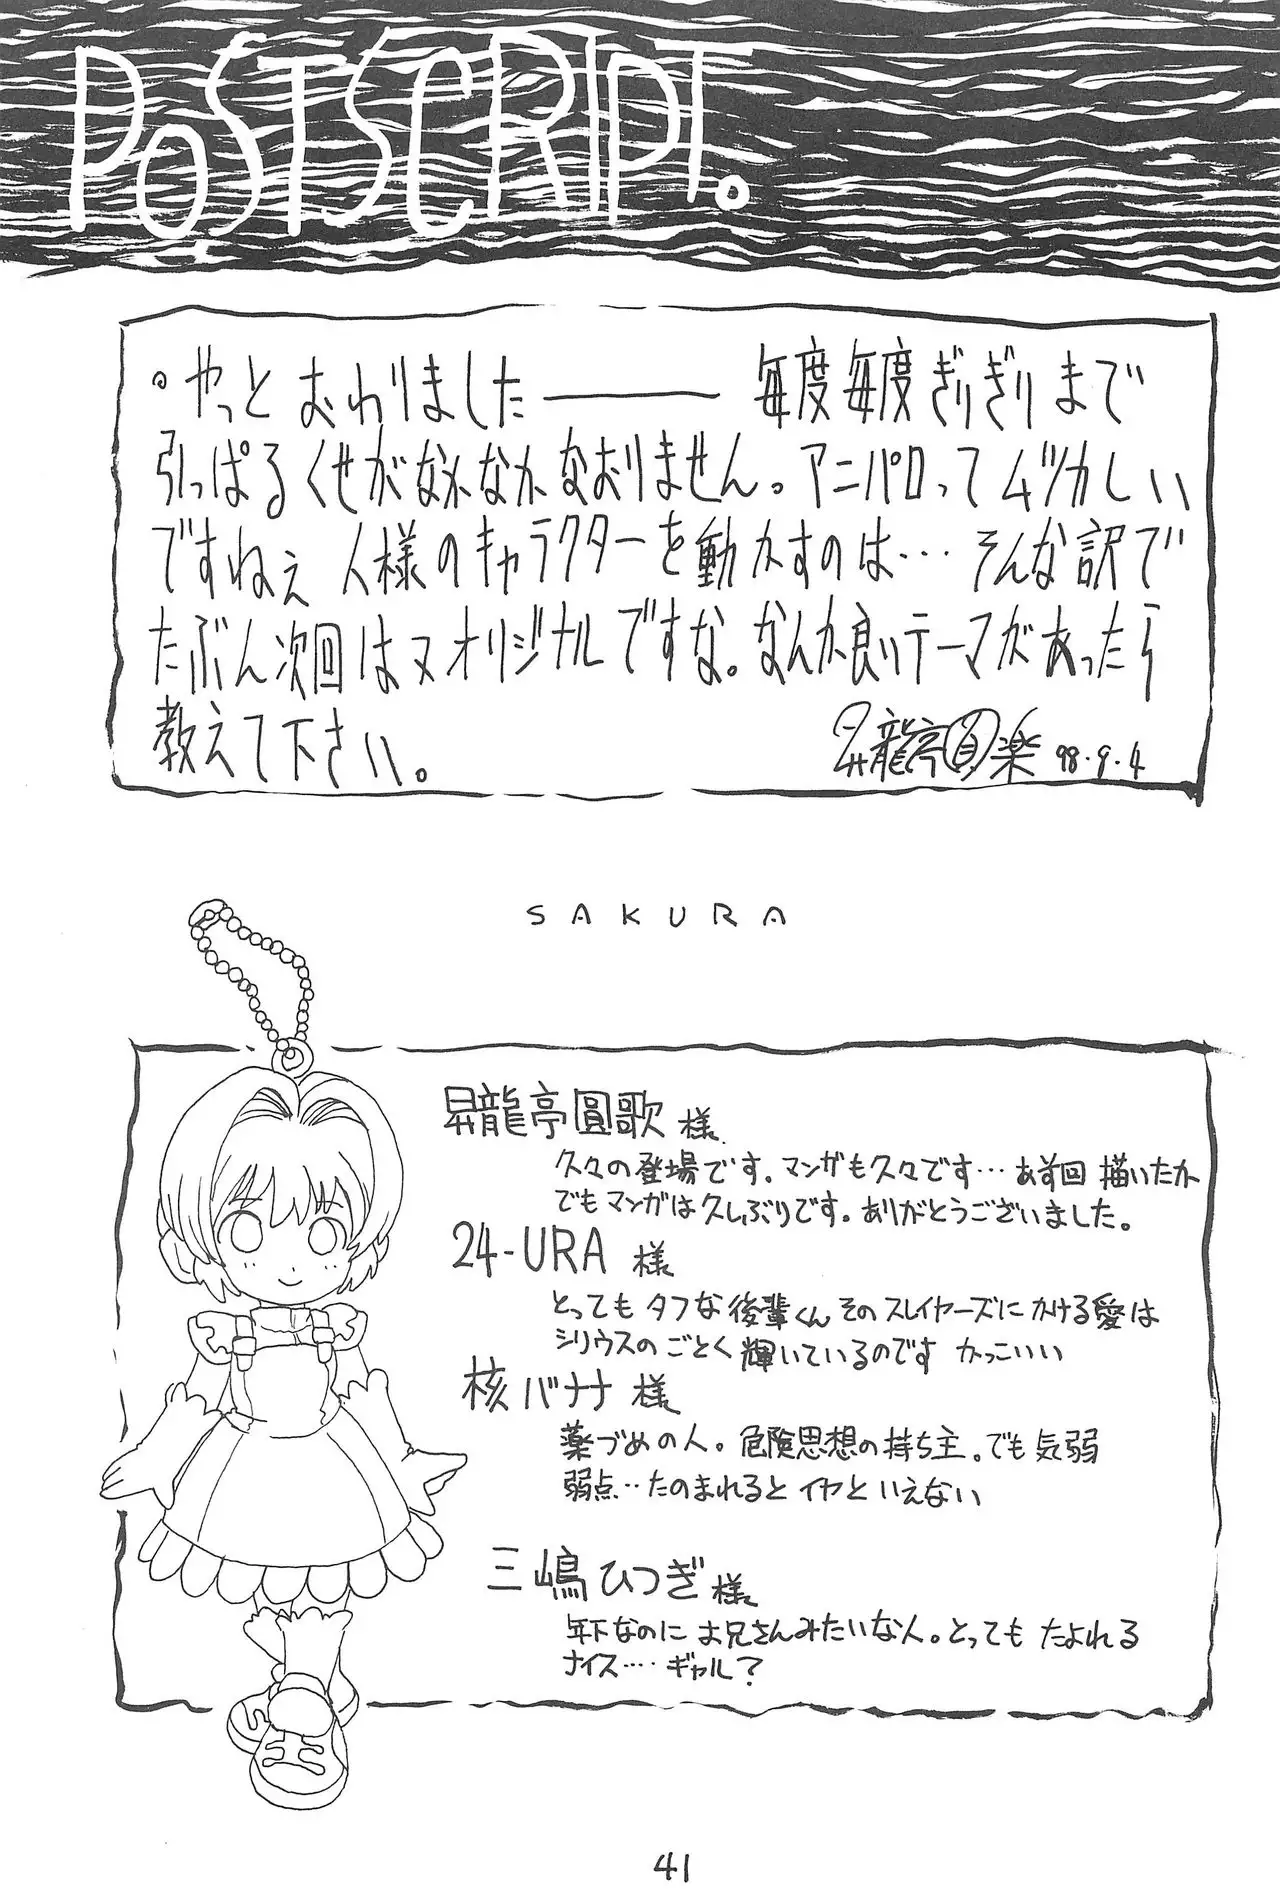 POSTSCRIPT。
◦やっと おわりました―― 毎度毎度ぎりぎりまで
引っぱるくせがなかなかなおりません。アニパロってムヅカしい
ですねぇ 人様のキャラクターを動かすのは… そんな訳で
たぶん次回はヌオリジナルですな。なんか良いテーマがあったら
教えて下さい。
昇龍亭圓楽 98.9.4
SAKURA
昇龍亭圓歌 様
久々の登場です。マンガも久々です…あす回 描いたか
でもマンガは久しぶりです。ありがとうございました。
24-URA 様
とってもタフな後輩くん そのスレイヤーズにかける愛は
シリウスのごとく輝いているのです かっこいい
核バナナ 様
薬づめの人。危険思想の持ち主。でも気弱
弱点‥たのまれるとイヤといえない
三嶋ひつぎ様
年下なのにお兄さんみたいな人。とってもたよれる
ナイス‥‥ギャル？
41